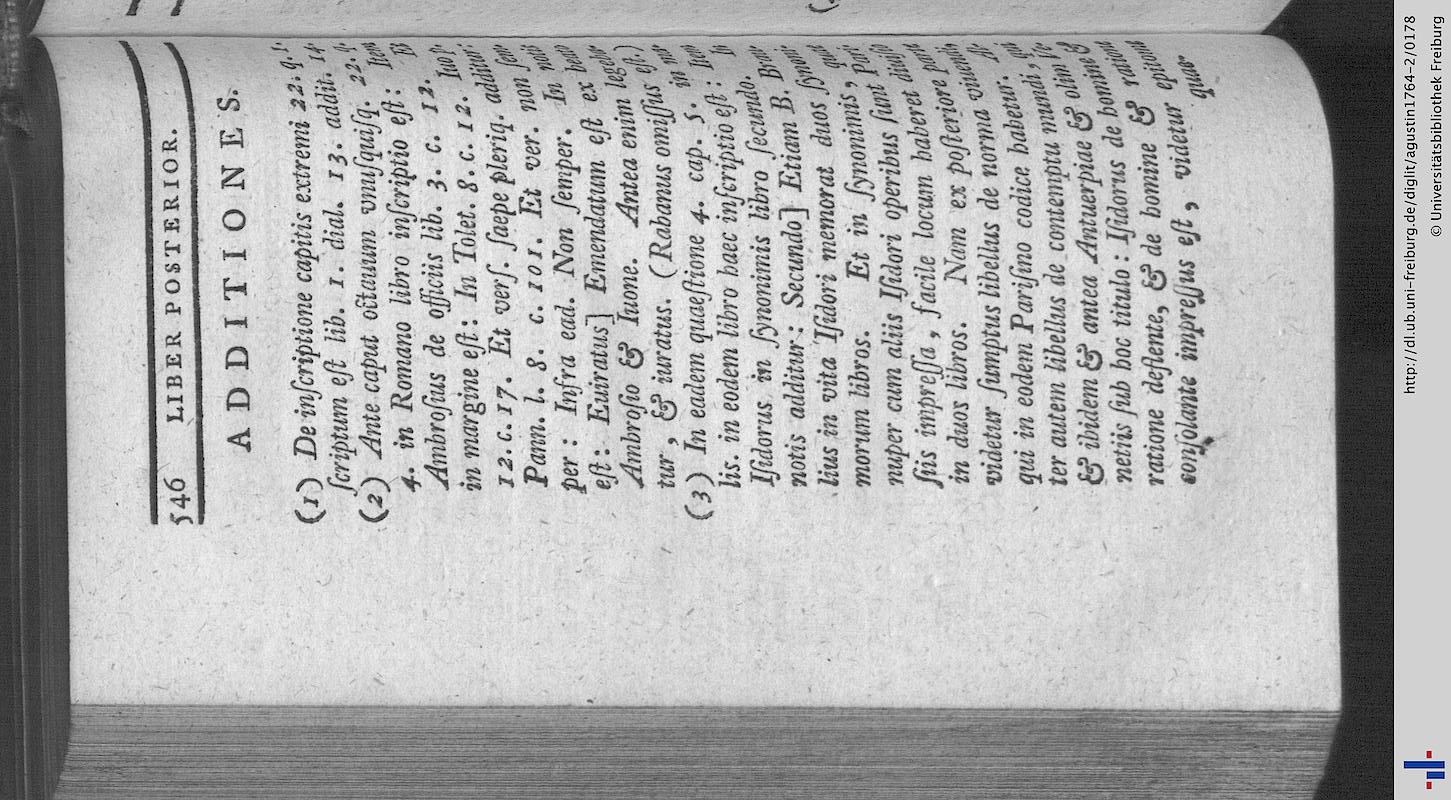 546 LIBER POSTERIOR.
ADDITIONES.
(1) De inſcriptione capitis extremi 22. q. 1.
ſcriptum eſt lib. 1. dial. 13. addit. 14.
(2) Ante caput octauum vnuſquiſq. 22. q.
4. in Romano libro inſcriptio eſt: Item
Ambroſius de officiis lib. 3. c. 12. Et
in margine eſt: In Tolet. 8. c. 12. Iuo ſ.
12. c. 17. Et verſ. ſaepe pleriq. additur:
Pann. l. 8. c. 101. Et ver. non ſem-
per: Infra ead. Non ſemper. In notis
eſt: Euiratus] Emendatum eſt ex beato
Ambroſio & Iuone. Antea enim legeba-
tur, & iuratus. (Rabanus omiſſus eſt.)
(3) In eadem quaeſtione 4. cap. 5. in
lis. in eodem libro haec inſcriptio eſt: Item
Iſidorus in ſynonimis libro ſecundo. In
notis additur: Secundo] Etiam B. Brau-
lius in vita Iſidori memorat duos ſynoni-
morum libros. Et in ſynonimis, quae
nuper cum aliis Iſidori operibus ſunt Pari-
ſiis impreſſa, facile locum haberet diuiſio
in duos libros. Nam ex poſteriore parte
videtur ſumptus libellus de norma viuendi,
qui in eodem Pariſino codice habetur. Ali-
ter autem libellus de contemptu mundi, qui
& ibidem & antea Antuerpiae & olim Ve-
netiis ſub hoc titulo: Iſidorus de homine &
ratione deflente, & de homine & ratione
conſolante impreſſus eſt, videtur epitome
quar-
http://dl.ub.uni-freiburg.de/diglit/agustin1764-2/0178
© Universitätsbibliothek Freiburg